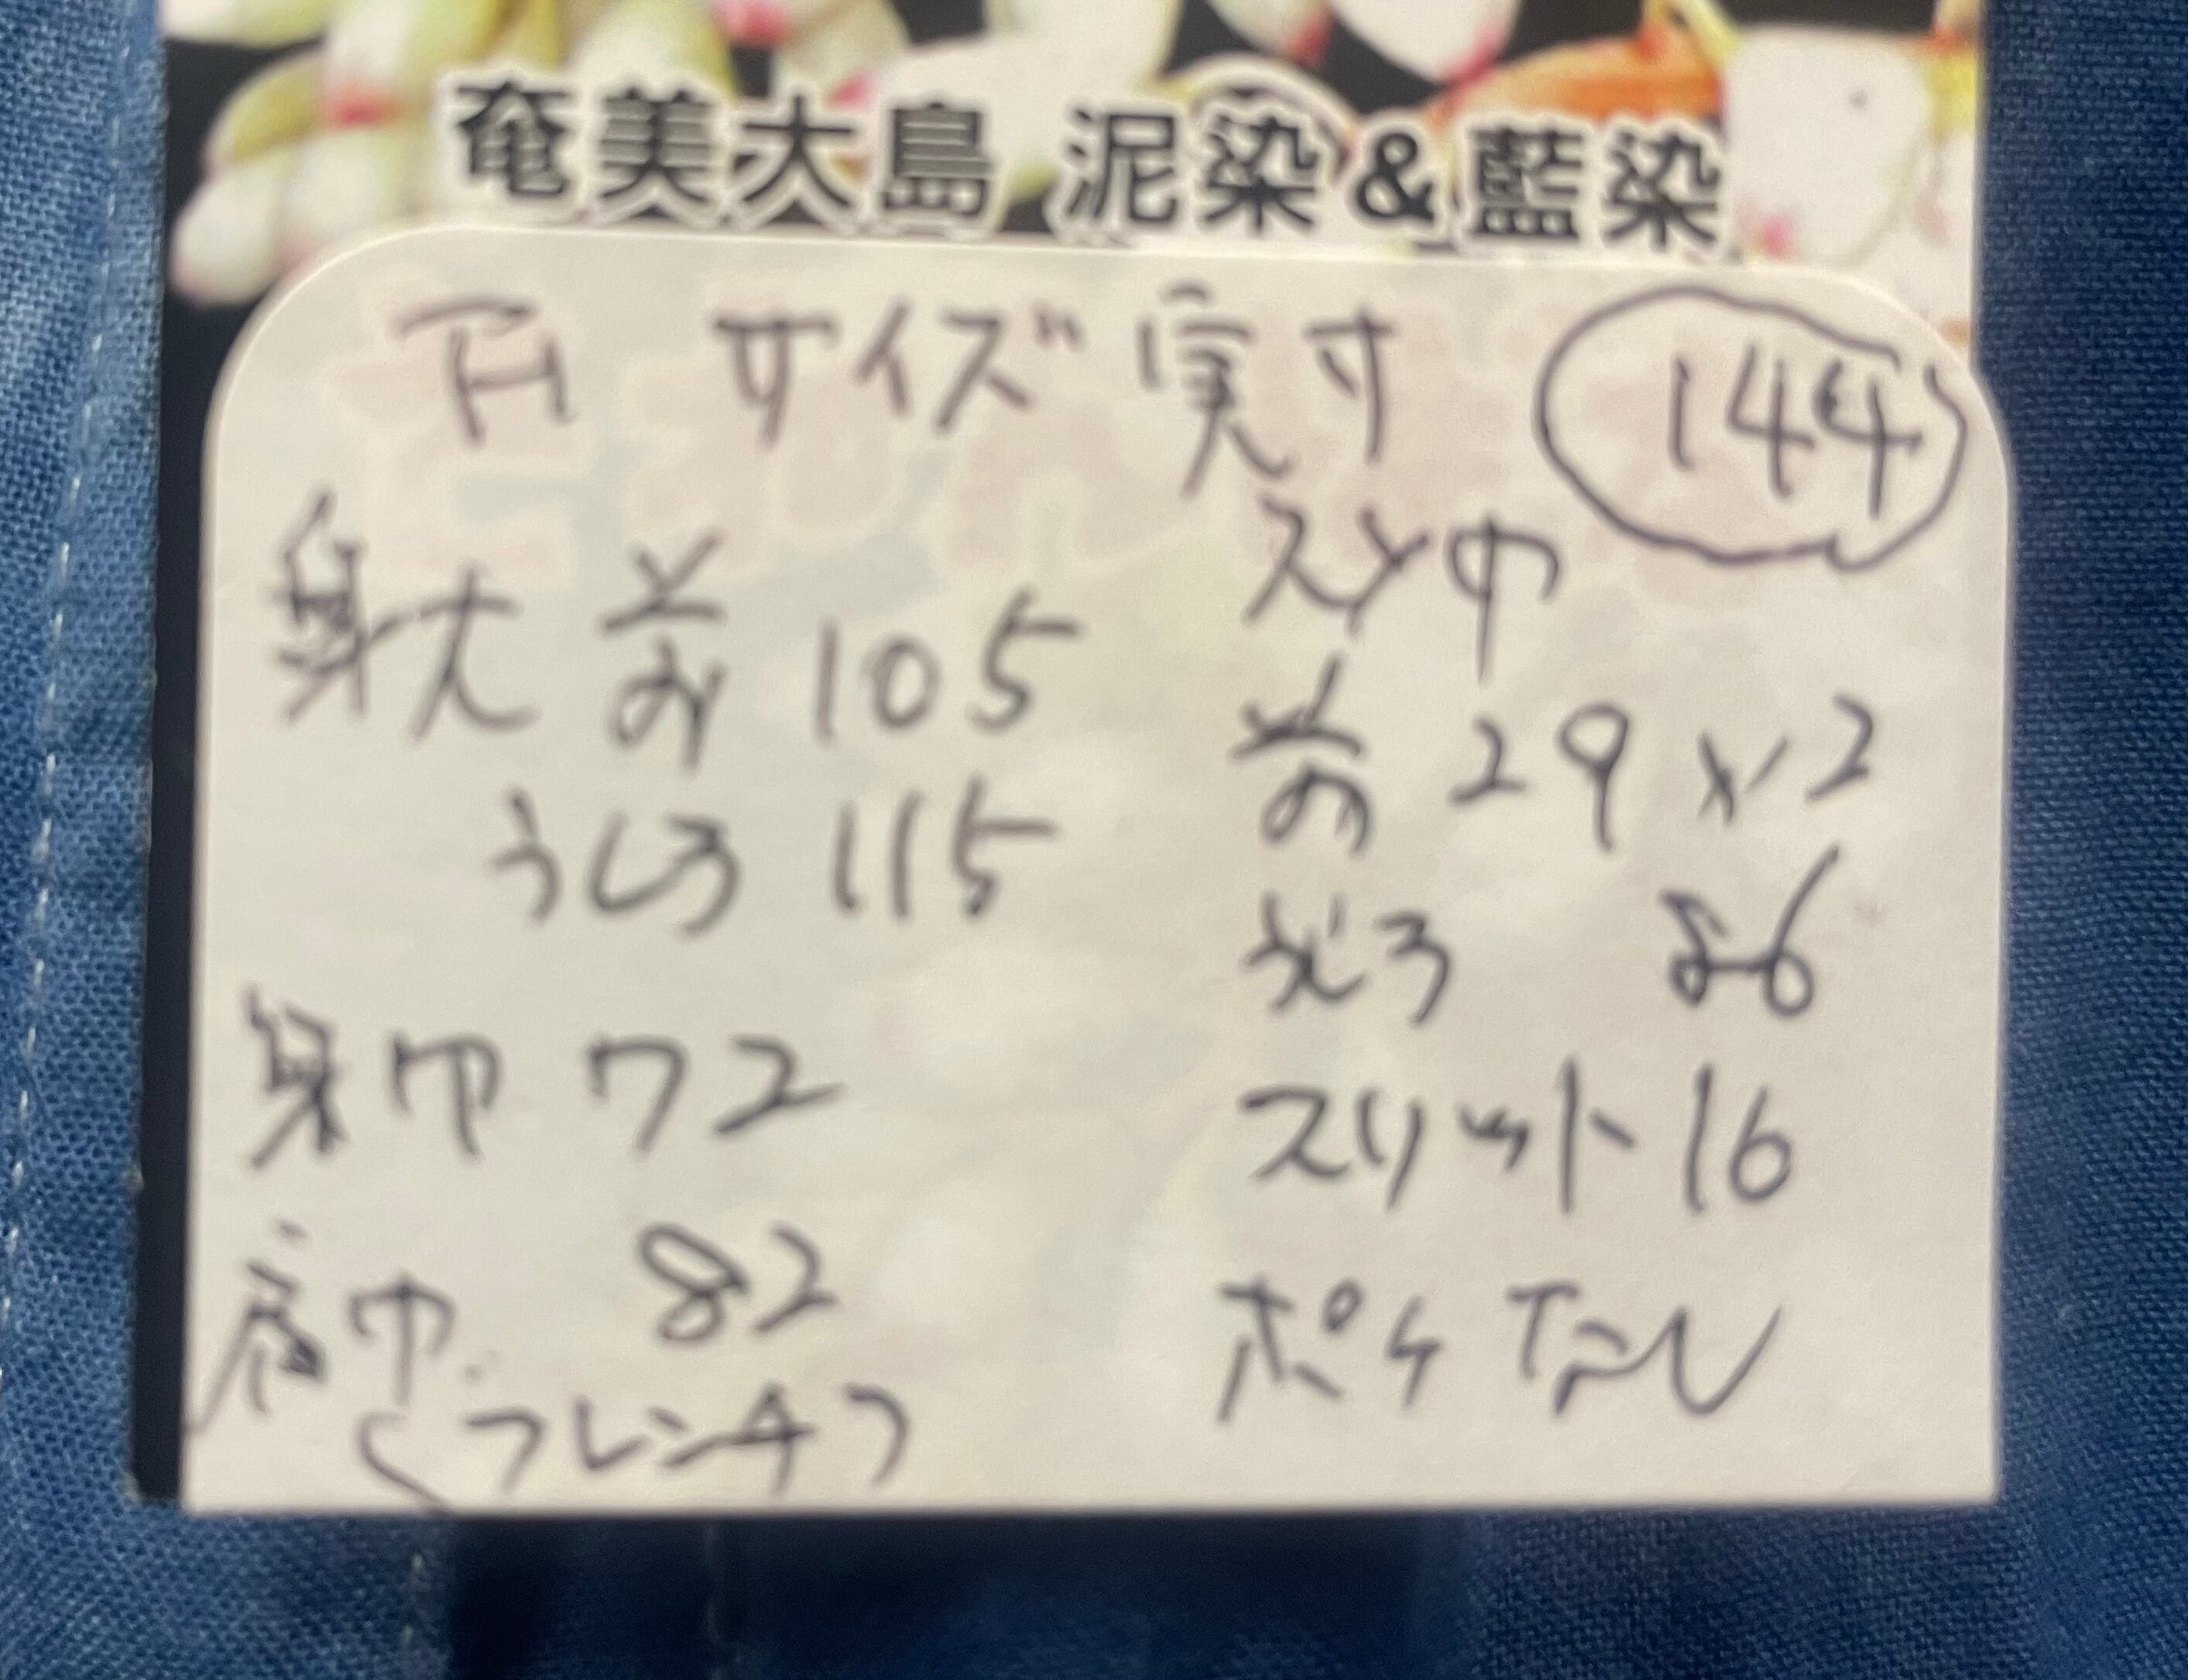 奄美大島 泥染&藍染
サイズ 実寸 144
身丈 前 105
うしろ 115
身巾 72
肩巾 82
(フレンチ)
スソ巾
前 29×2
うしろ 86
スリット 16
ポケ